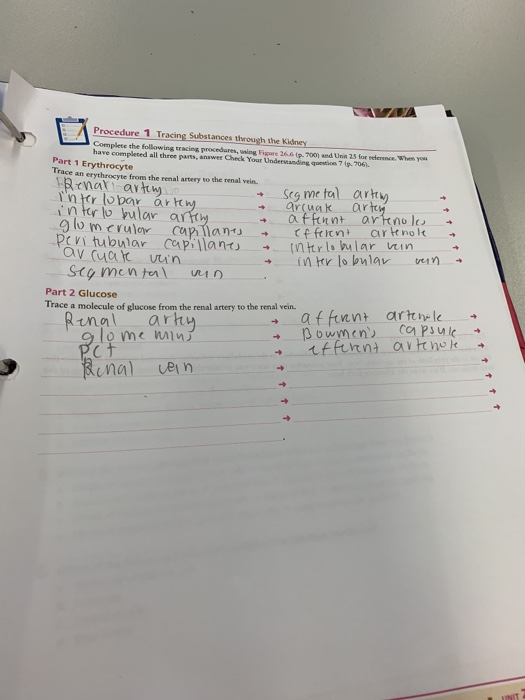 Procedure 1 Tracing Substances through the Kidney
Complete the following tracing procedures, using Figure 26.6 (p. 700) and Unit 25 for reference. When you
have completed all three parts, answer Check Your Understanding question 7 (p. 706).
Part 1 Erythrocyte
Trace an erythrocyte from the renal artery to the renal vein.
Renal artery → segmetal artery →
interlobar artery → arcuate artery →
interlobular artery → afferent arterioles →
glomerular capillaries → efferent arteriole →
peritubular capillaries → interlobular vein →
arcuate vein → interlobular vein →
segmental vein
Part 2 Glucose
Trace a molecule of glucose from the renal artery to the renal vein.
Renal artery → afferent arteriole →
glomemlus → Bowmen's capsule →
PCT → efferent arteriole →
Renal vein → →
→ →
→ →
→ →
UNIT